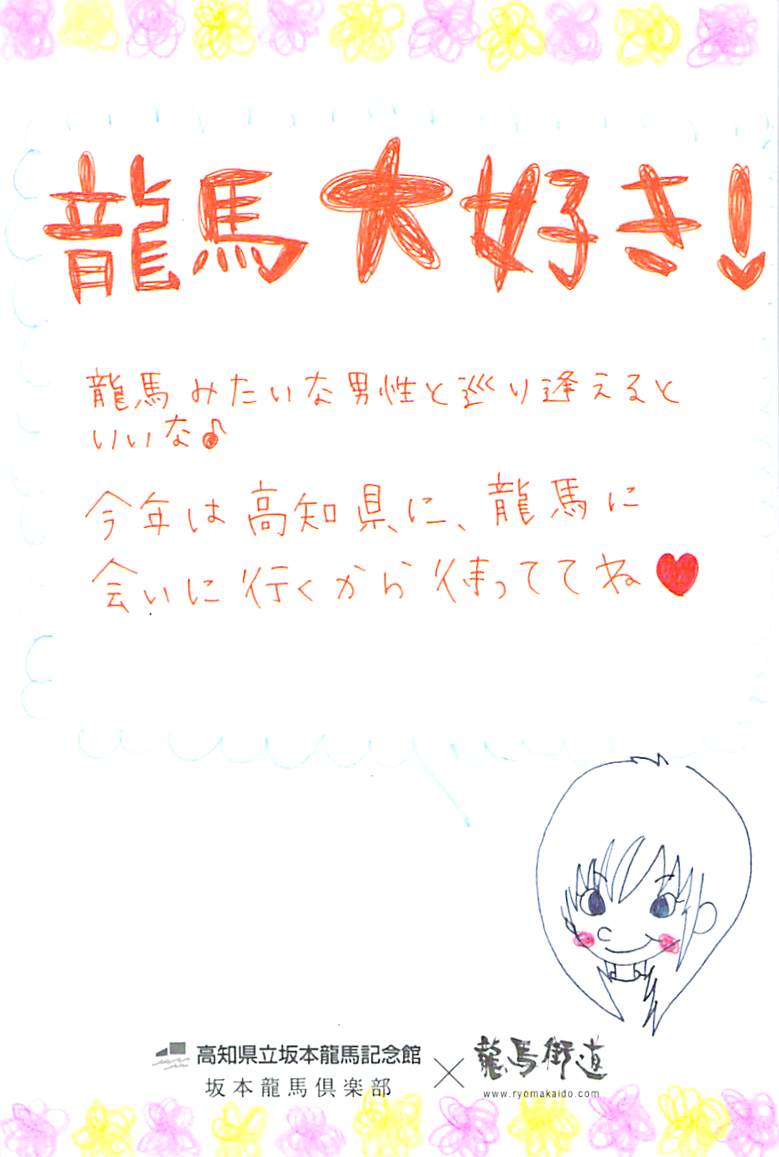 龍馬大好き!
龍馬みたいな男性と巡り逢えると
いいな♪
今年は高知県に、龍馬に
会いに行くから待っててね♥
高知県立坂本龍馬記念館
坂本龍馬倶楽部
×
龍馬街道
www.ryomakaido.com